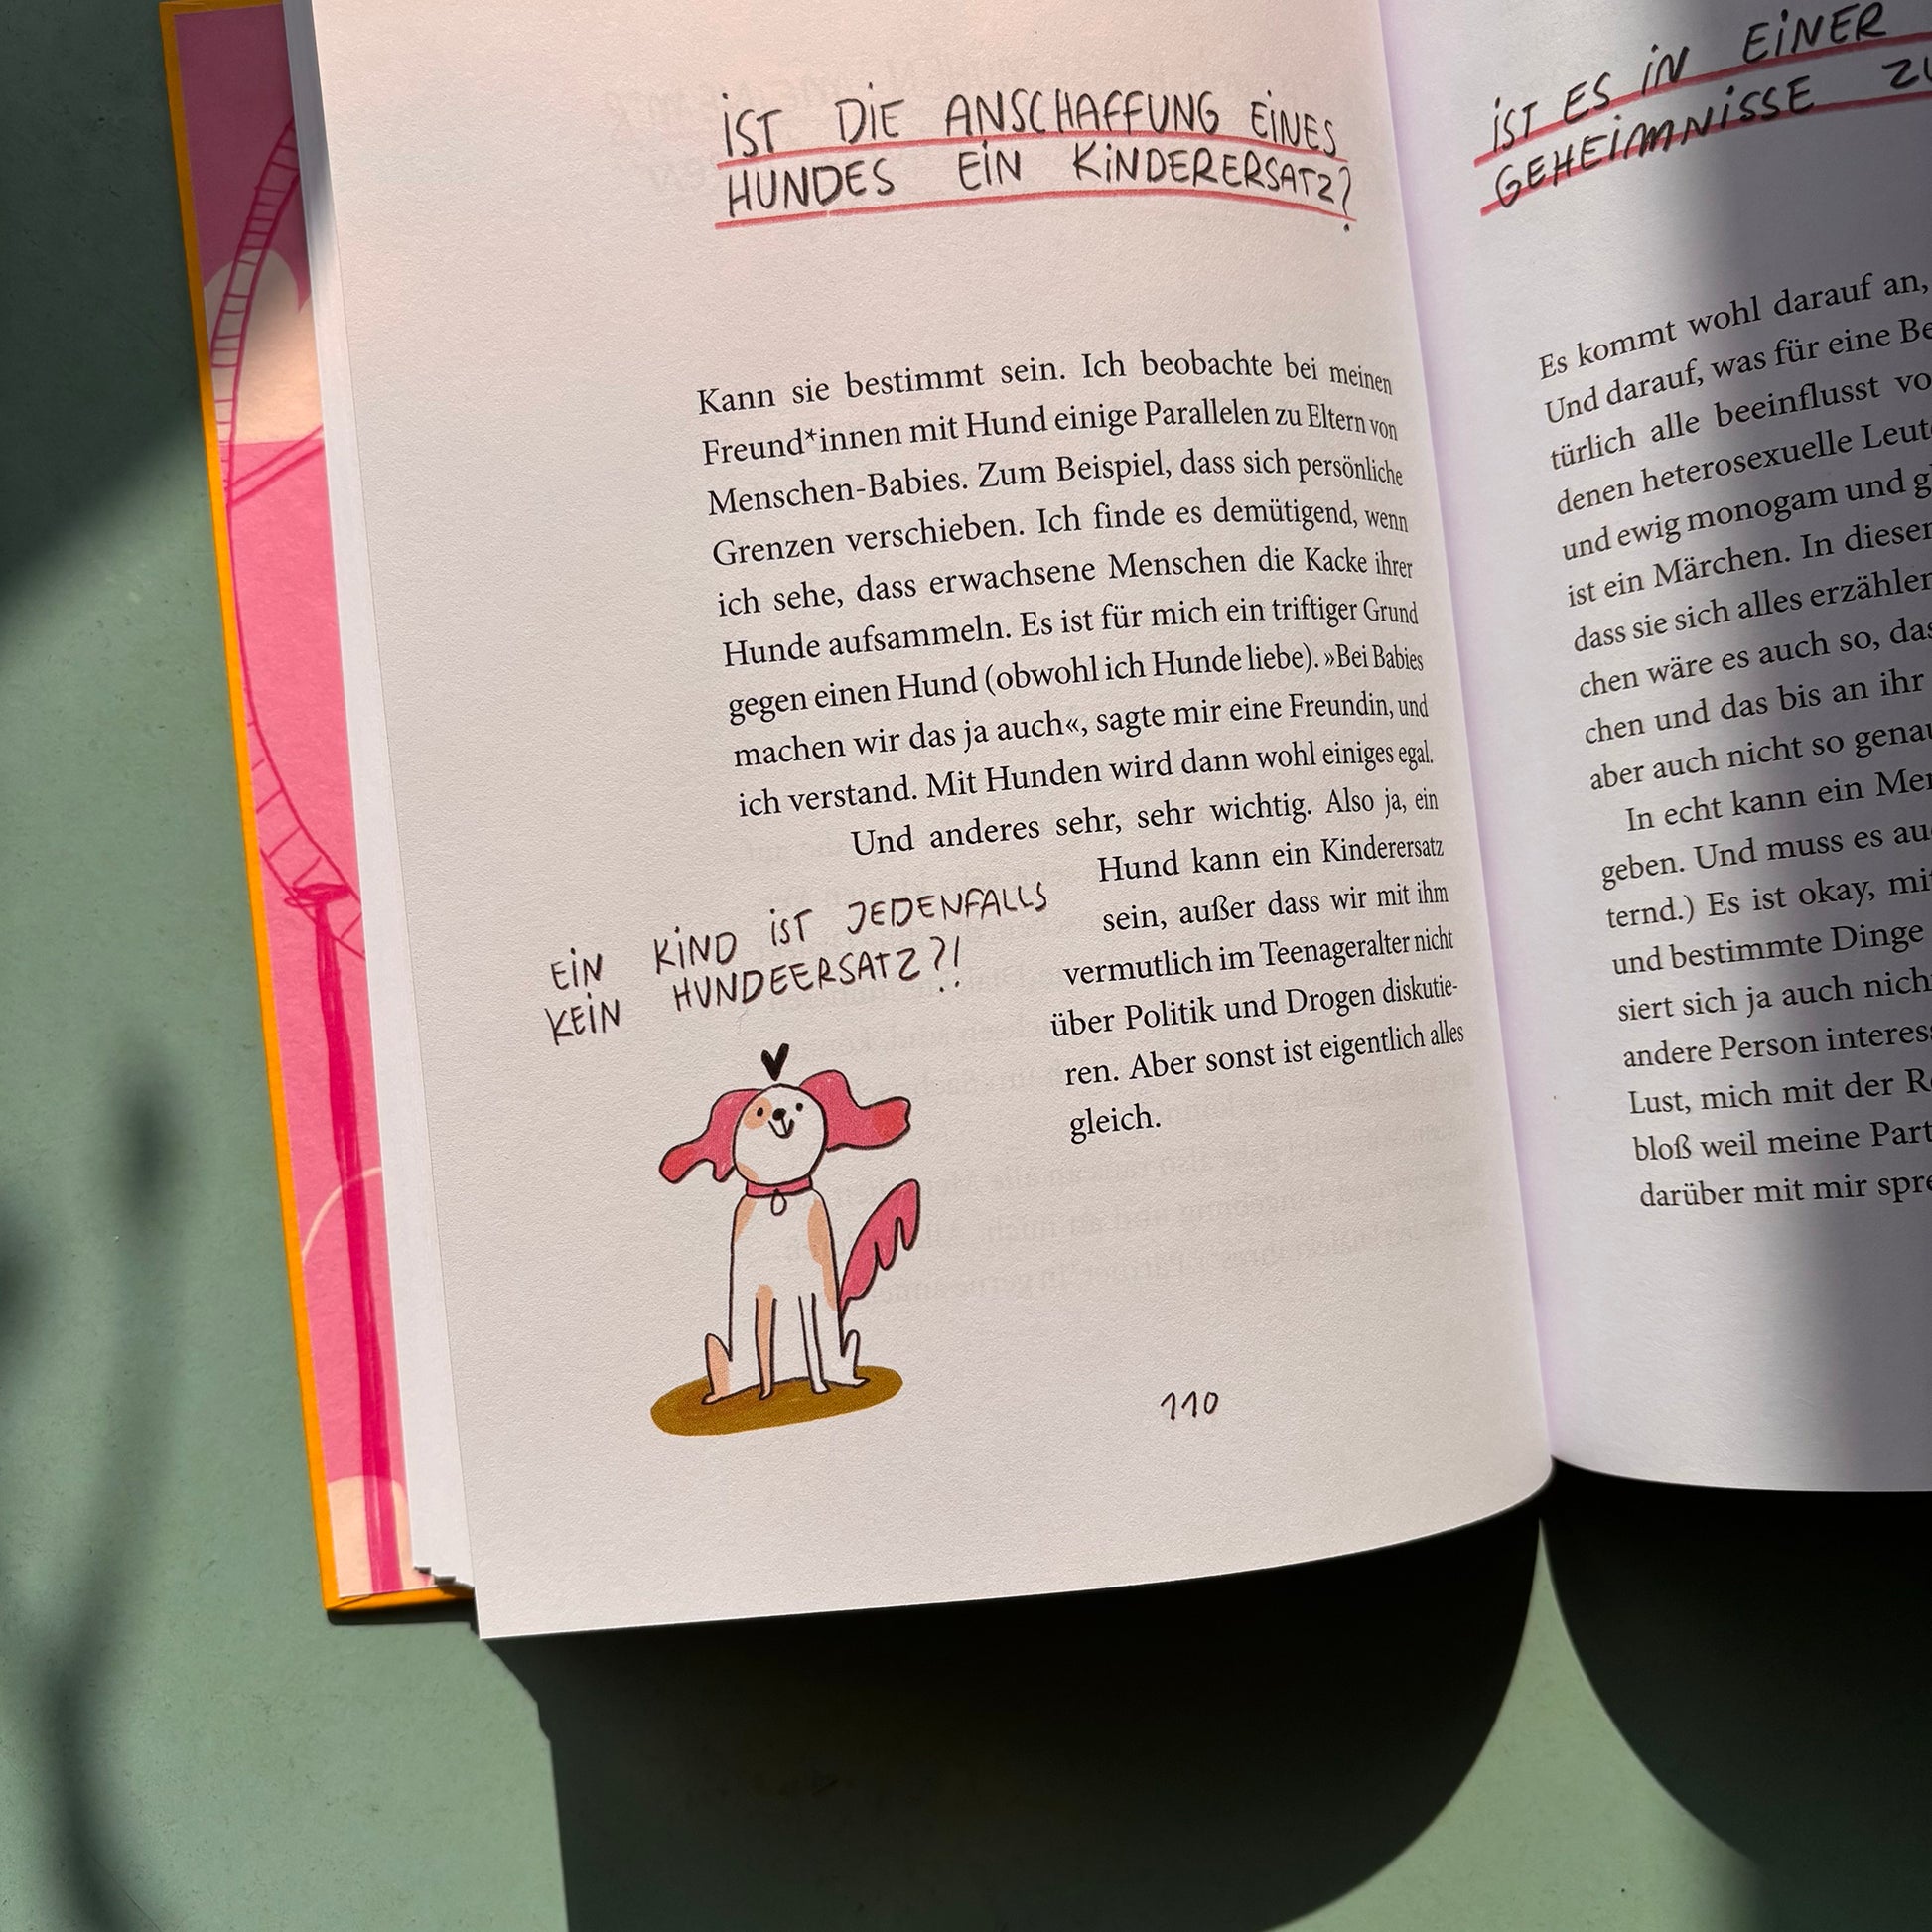 iST DiE ANSCHAFFUNG EiNES
HUNDES EiN KiNDERERSATZ?
Kann sie bestimmt sein. Ich beobachte bei meinen
Freund*innen mit Hund einige Parallelen zu Eltern von
Menschen-Babies. Zum Beispiel, dass sich persönliche
Grenzen verschieben. Ich finde es demütigend, wenn
ich sehe, dass erwachsene Menschen die Kacke ihrer
Hunde aufsammeln. Es ist für mich ein triftiger Grund
gegen einen Hund (obwohl ich Hunde liebe). »Bei Babies
machen wir das ja auch«, sagte mir eine Freundin, und
ich verstand. Mit Hunden wird dann wohl einiges egal.
Und anderes sehr, sehr wichtig. Also ja, ein
Hund kann ein Kinderersatz
sein, außer dass wir mit ihm
vermutlich im Teenageralter nicht
über Politik und Drogen diskutie-
ren. Aber sonst ist eigentlich alles
gleich.
EiN KiND iST JEDENFALLS
KEiN HUNDEERSATZ?!
110
iST ES iN EiNER
GEHEiMNiSSE
Es kommt wohl darauf an,
Und darauf, was für eine
türlich alle beeinflusst
denen heterosexuelle
und ewig monogam und
ist ein Märchen. In
dass sie sich alles
chen wäre es auch so,
chen und das bis an ihr
aber auch nicht so
In echt kann ein
geben. Und muss es
ternd.) Es ist okay,
und bestimmte Dinge
siert sich ja auch
andere Person
Lust, mich mit der
bloß weil meine
darüber mit mir